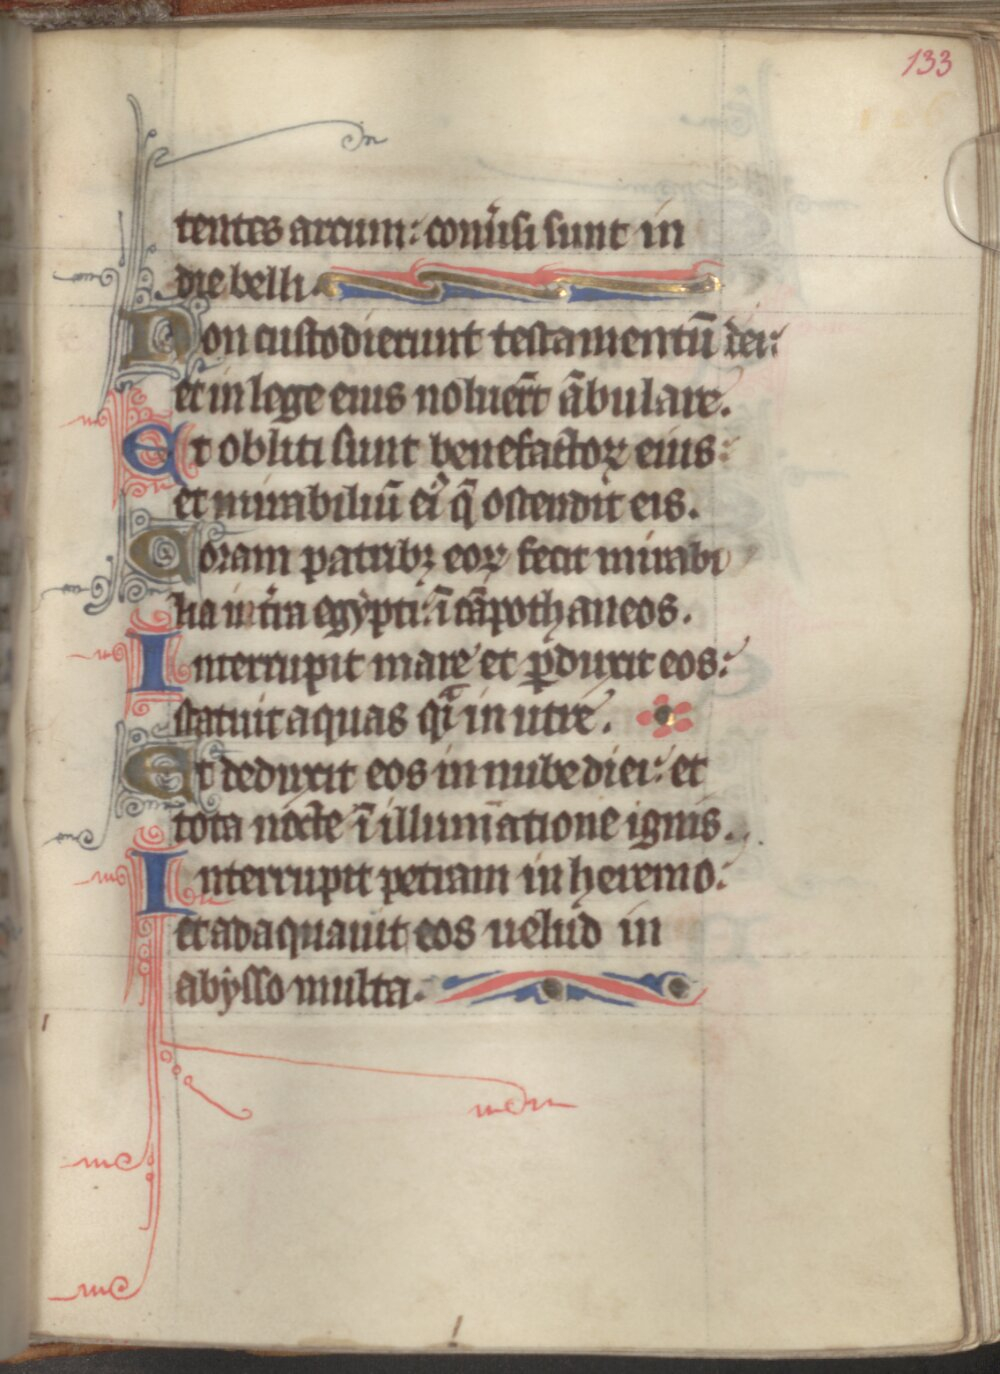 133
tentes arcum: conũsi sunt in
die belli.
Non custodierunt testamentũ dei:
et in lege eius noluer̃t ãbulare.
Et obliti sunt benefactoꝝ eius:
et mirabiliũ ei᷒ q̃ ostendit eis.
Coram patribꝫ eoꝝ fecit mirabi
lia in t̃ra egypti: ĩ cãpo thaneos.
Interrupit mare et ꝑduxit eos:
statuit aquas q̃i in utre.
Et deduxit eos in nube diei: et
tota nocte ĩ illuminatione ignis.
Interrupit petram in heremo:
et adaquauit eos uelud in
abysso multa.